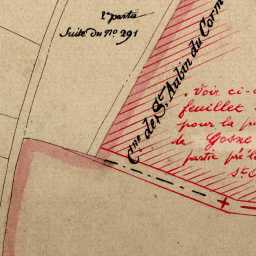 1re partie
Suite du No 291
Cne de St Aubin du Corm
Voir ci-
feuillet
pour la p
de Gosne
partie pré